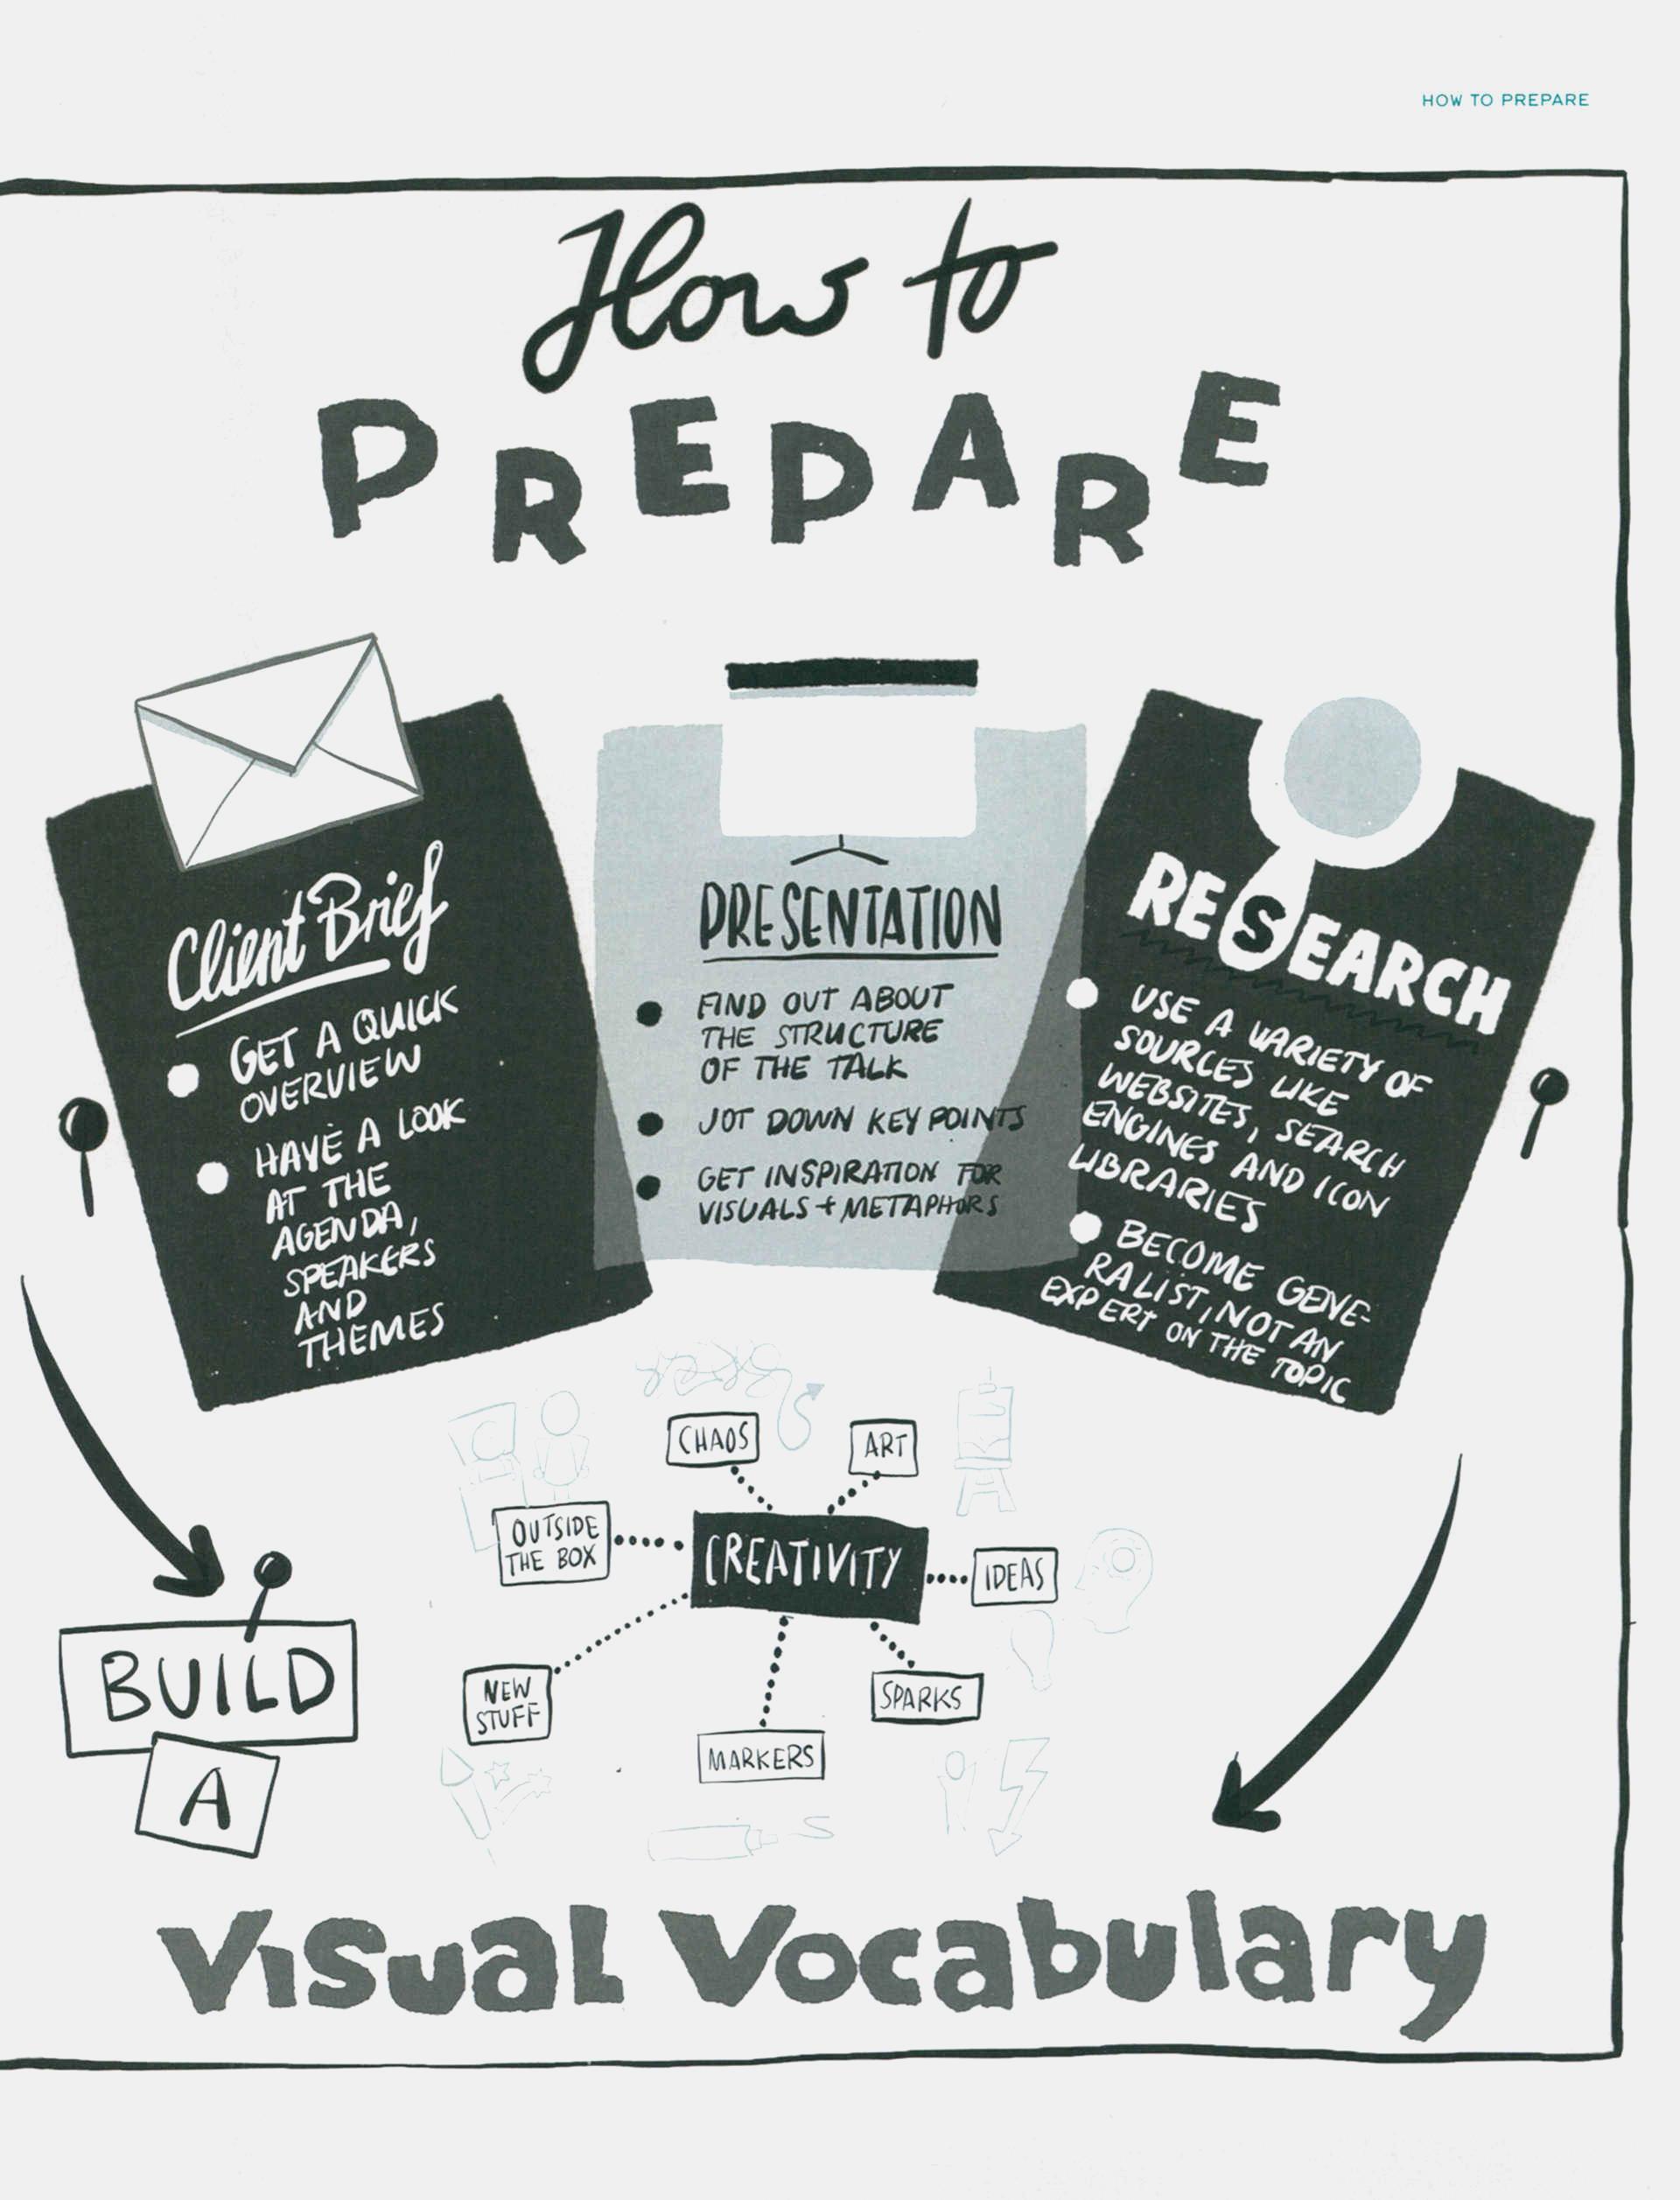 HOW TO PREPARE
How to
PREPARE
Client Brief
GET A QUICK
OVERVIEW
HAVE A LOOK
AT THE
AGENDA,
SPEAKERS
AND
THEMES
PRESENTATION
FIND OUT ABOUT
THE STRUCTURE
OF THE TALK
JOT DOWN KEY POINTS
GET INSPIRATION FOR
VISUALS + METAPHORS
RESEARCH
USE A VARIETY OF
SOURCES LIKE
WEBSITES, SEARCH
ENGINES AND ICON
LIBRARIES
BECOME GENE-
RALIST, NOT AN
EXPERT ON THE TOPIC
CHAOS
ART
OUTSIDE
THE BOX
CREATIVITY
IDEAS
NEW
STUFF
SPARKS
MARKERS
BUILD
A
Visual Vocabulary